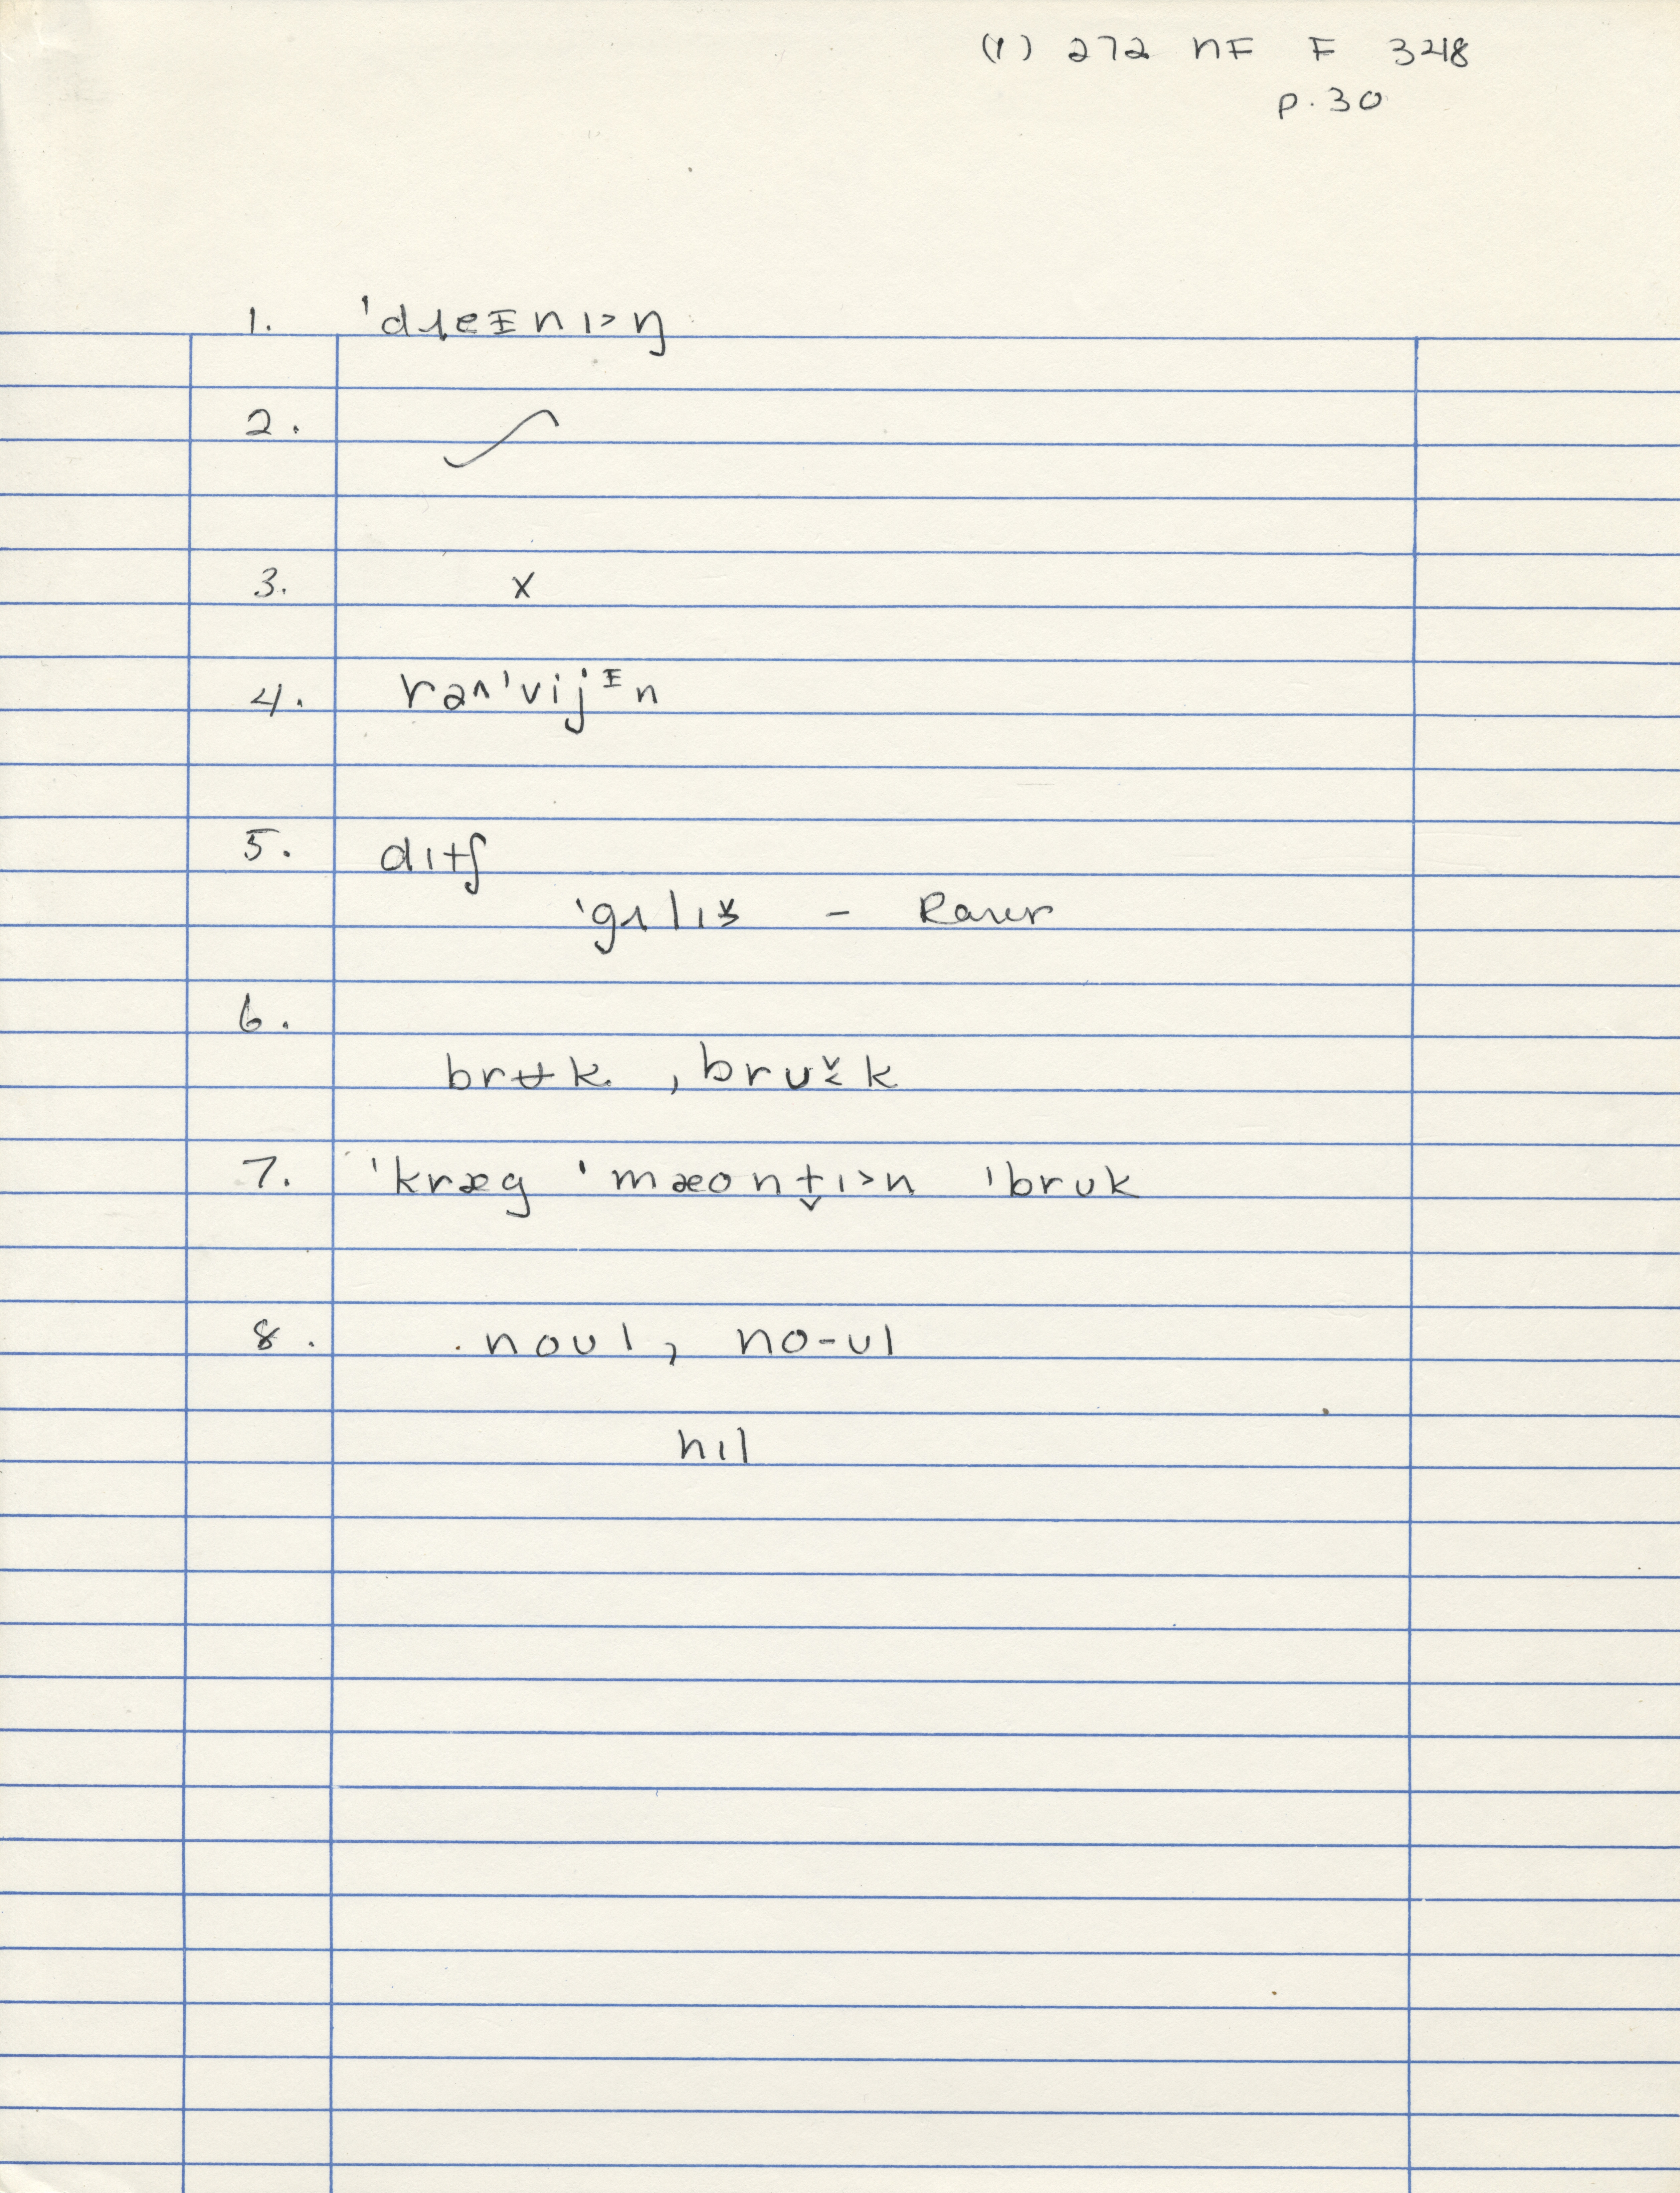 (1) 272 NF F 348
p. 30
1. ˈdɹeᵻnɪ>ŋ
2. ✓
3. x
4. rəʌˈvijᵻn
5. dɪtʃ
- Rarer
6.
brʉk, brʊ̬k
7. ˈkræg ˈmæont̬ɪ>n ˈbrʊk
8. noʊl, no-ʊl
hɪl